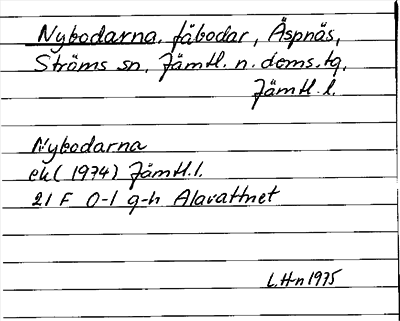 Nybodarna, fäbodar, Äspnäs,
Ströms sn, Jämtl. n. doms.tg,
Jämtl. l.
Nybodarna
ek (1974) Jämtl. l.
21 F 0-1 g-h Alavattnet
L.H-n 1975